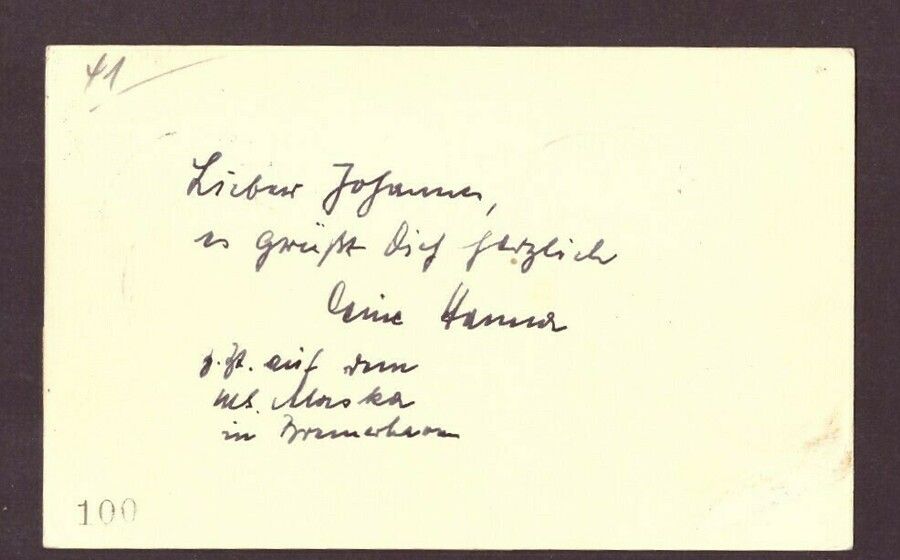 41
Lieber Johannes,
es grüßt Dich herzlich
Deine Hanna
z. Zt. auf dem
MS. Alaska
in Bremerhaven
100